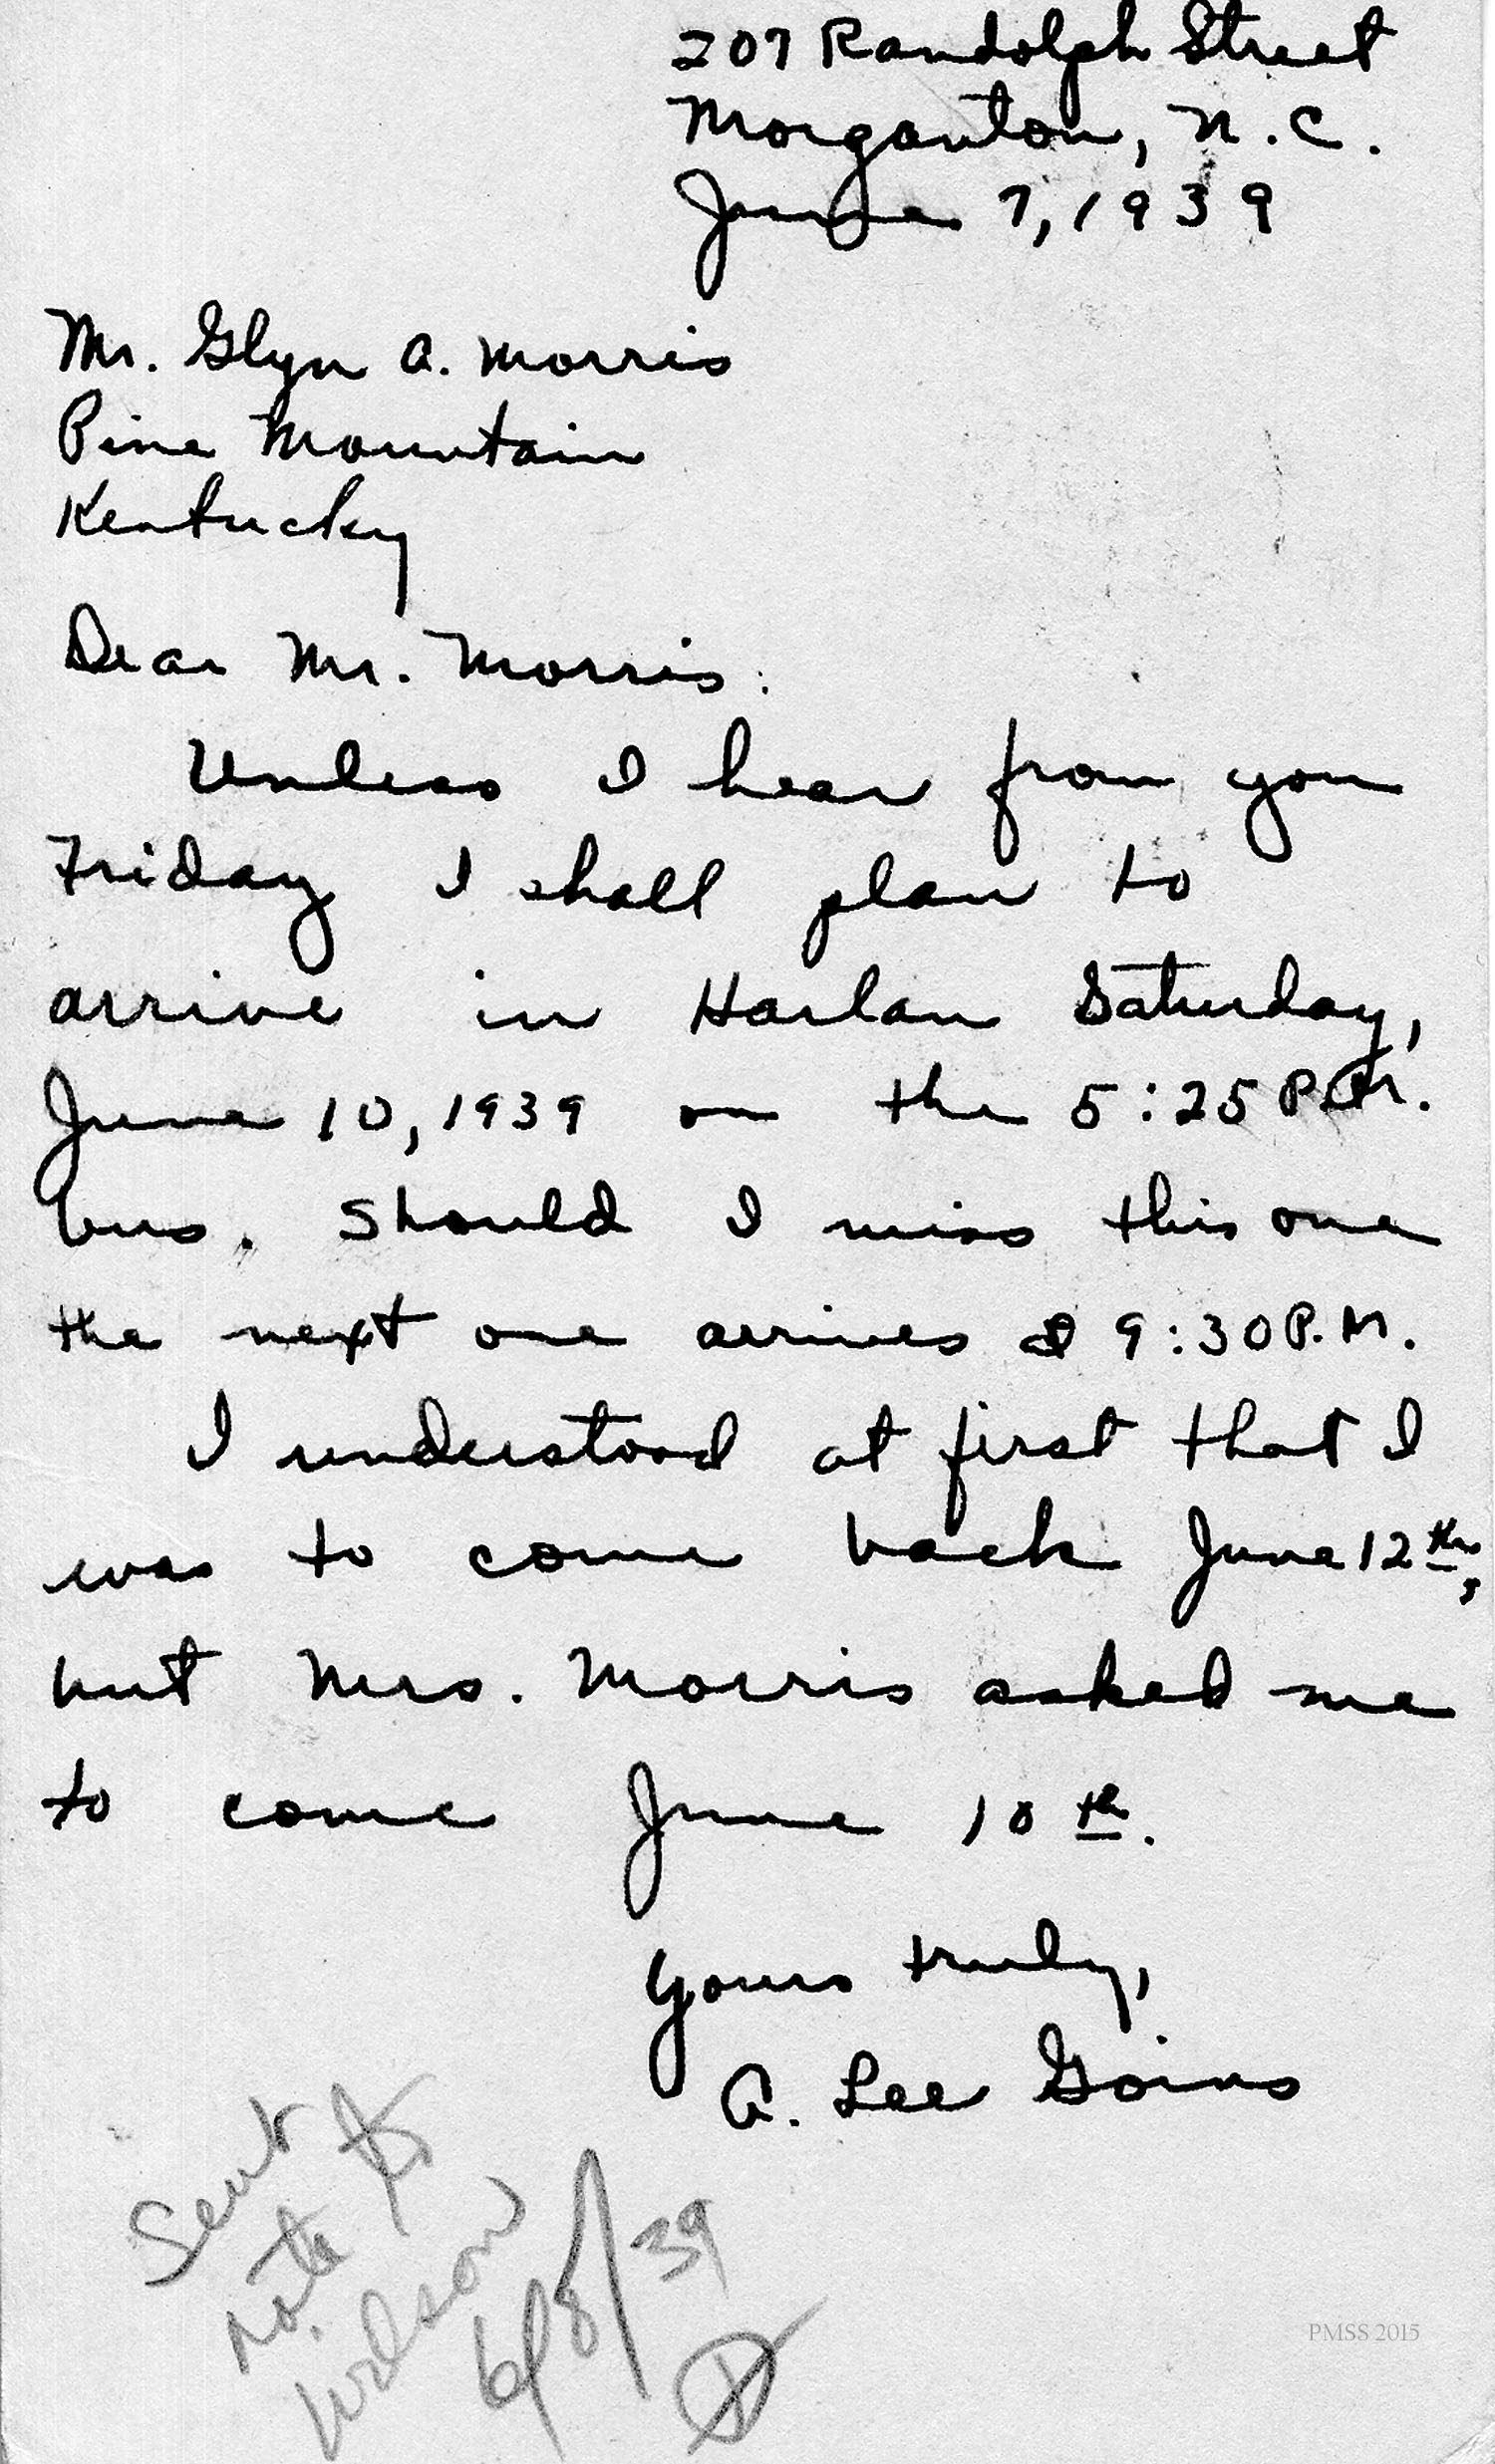 207 Randolph Street
Morganton, N.C.
June 7, 1939
Mr. Glyn A. Morris
Pine Mountain
Kentucky
Dear Mr. Morris:
Unless I hear from you
Friday I shall plan to
arrive in Harlan Saturday,
June 10, 1939 on the 5:25 P.M.
bus. Should I miss this one
the next one arrives 9:30 P.M.
I understood at first that I
was to come back June 12th,
but Mrs. Morris asked me
to come June 10th.
Yours truly,
A. Lee Goins
Sent
note to
Wilson
6/8/39
PMSS 2015